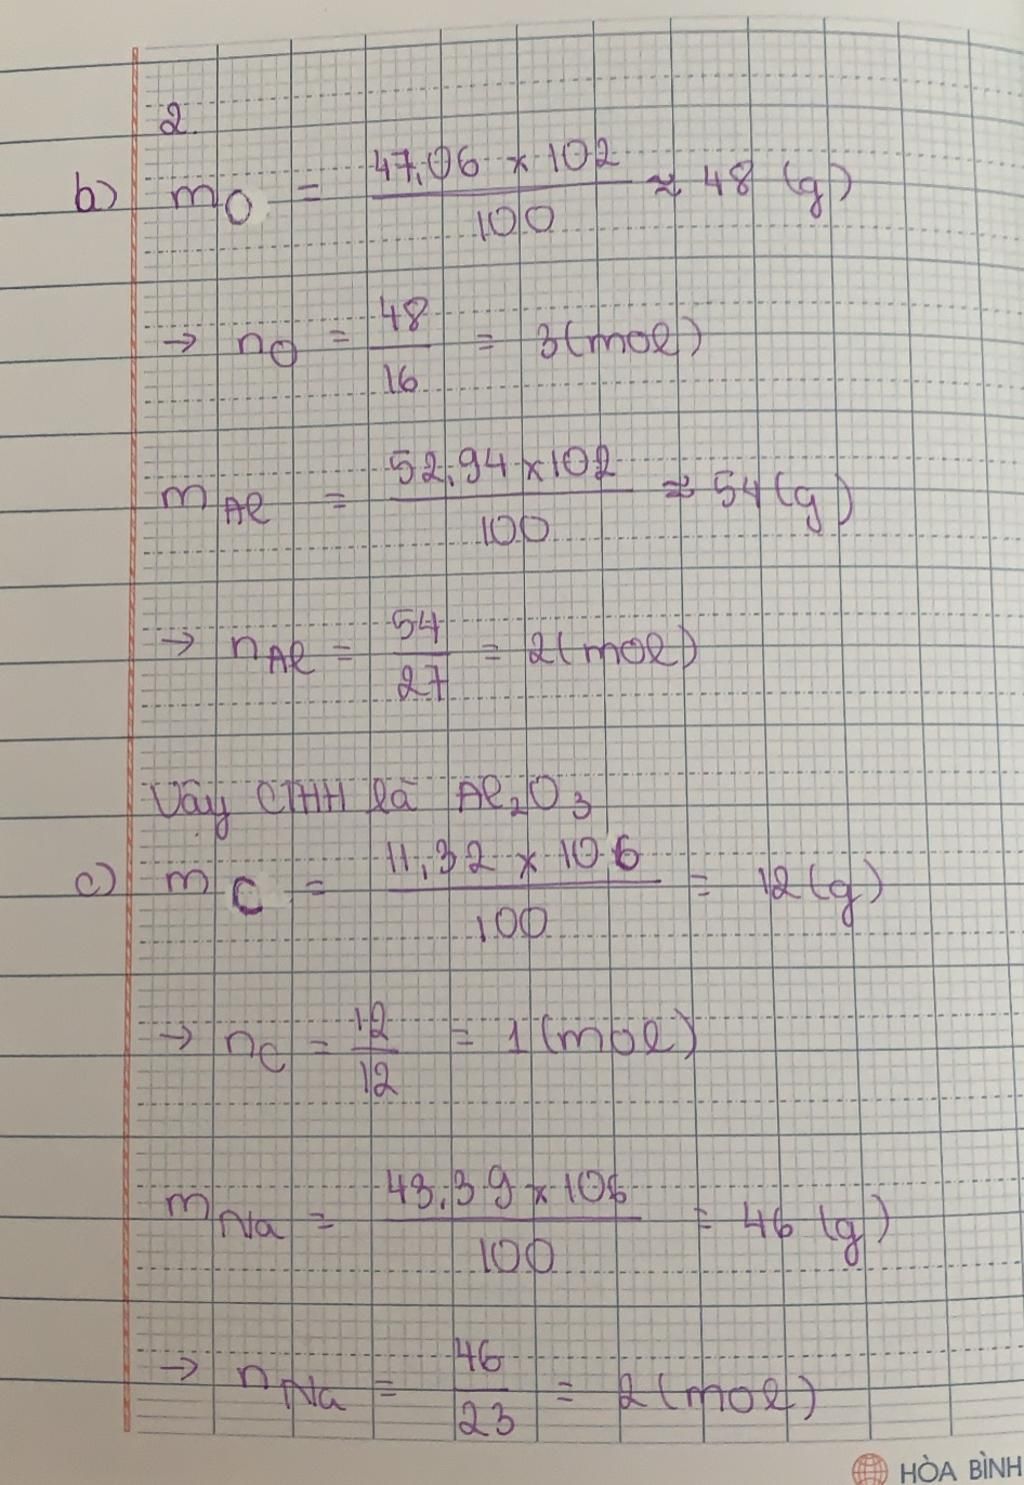 2.
b) mO = 47,06 x 102 / 100 ≈ 48 (g)
→ nO = 48 / 16 = 3 (mol)
mAl = 52,94 x 102 / 100 ≈ 54 (g)
→ nAl = 54 / 27 = 2 (mol)
Vậy CTHH là Al₂O₃
c) mC = 11,32 x 106 / 100 = 12 (g)
→ nC = 12 / 12 = 1 (mol)
mNa = 43,39 x 106 / 100 = 46 (g)
→ nNa = 46 / 23 = 2 (mol)
HÒA BÌNH